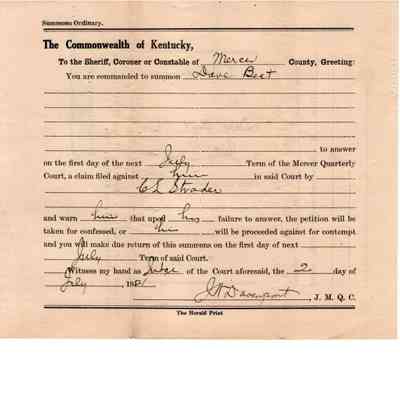 Summons Ordinary.
The Commonwealth of Kentucky,
To the Sheriff, Coroner or Constable of Mercer County, Greeting:
You are commanded to summon Dave Best
to answer
on the first day of the next July Term of the Mercer Quarterly
Court, a claim filed against him in said Court by
C L Strader
and warn him that upon his failure to answer, the petition will be
taken for confessed, or he will be proceeded against for contempt
and you will make due return of this summons on the first day of next
July Term of said Court.
Witness my hand as Judge of the Court aforesaid, the 2 day of
July, 18
Davenport, J. M. Q. C.
The Herald Print